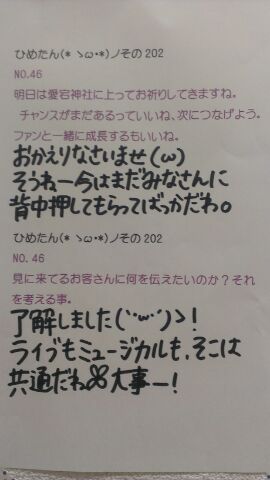 ひめたん(* ゝω・*)ノその202
NO.46
明日は愛宕神社に上ってお祈りしてきますね。
チャンスがまだあるっていいね、次につなげよう。
ファンと一緒に成長するもいいね。
おかえりなさいませ(ω)
そうねー今はまだみなさんに
背中押してもらってばっかだわ。
ひめたん(* ゝω・*)ノその202
NO.46
見に来てるお客さんに何を伝えたいのか？それ
を考える事。
了解しました(`･ω･´)ゝ!
ライブもミュージカルも、そこは
共通だね 大事ー!